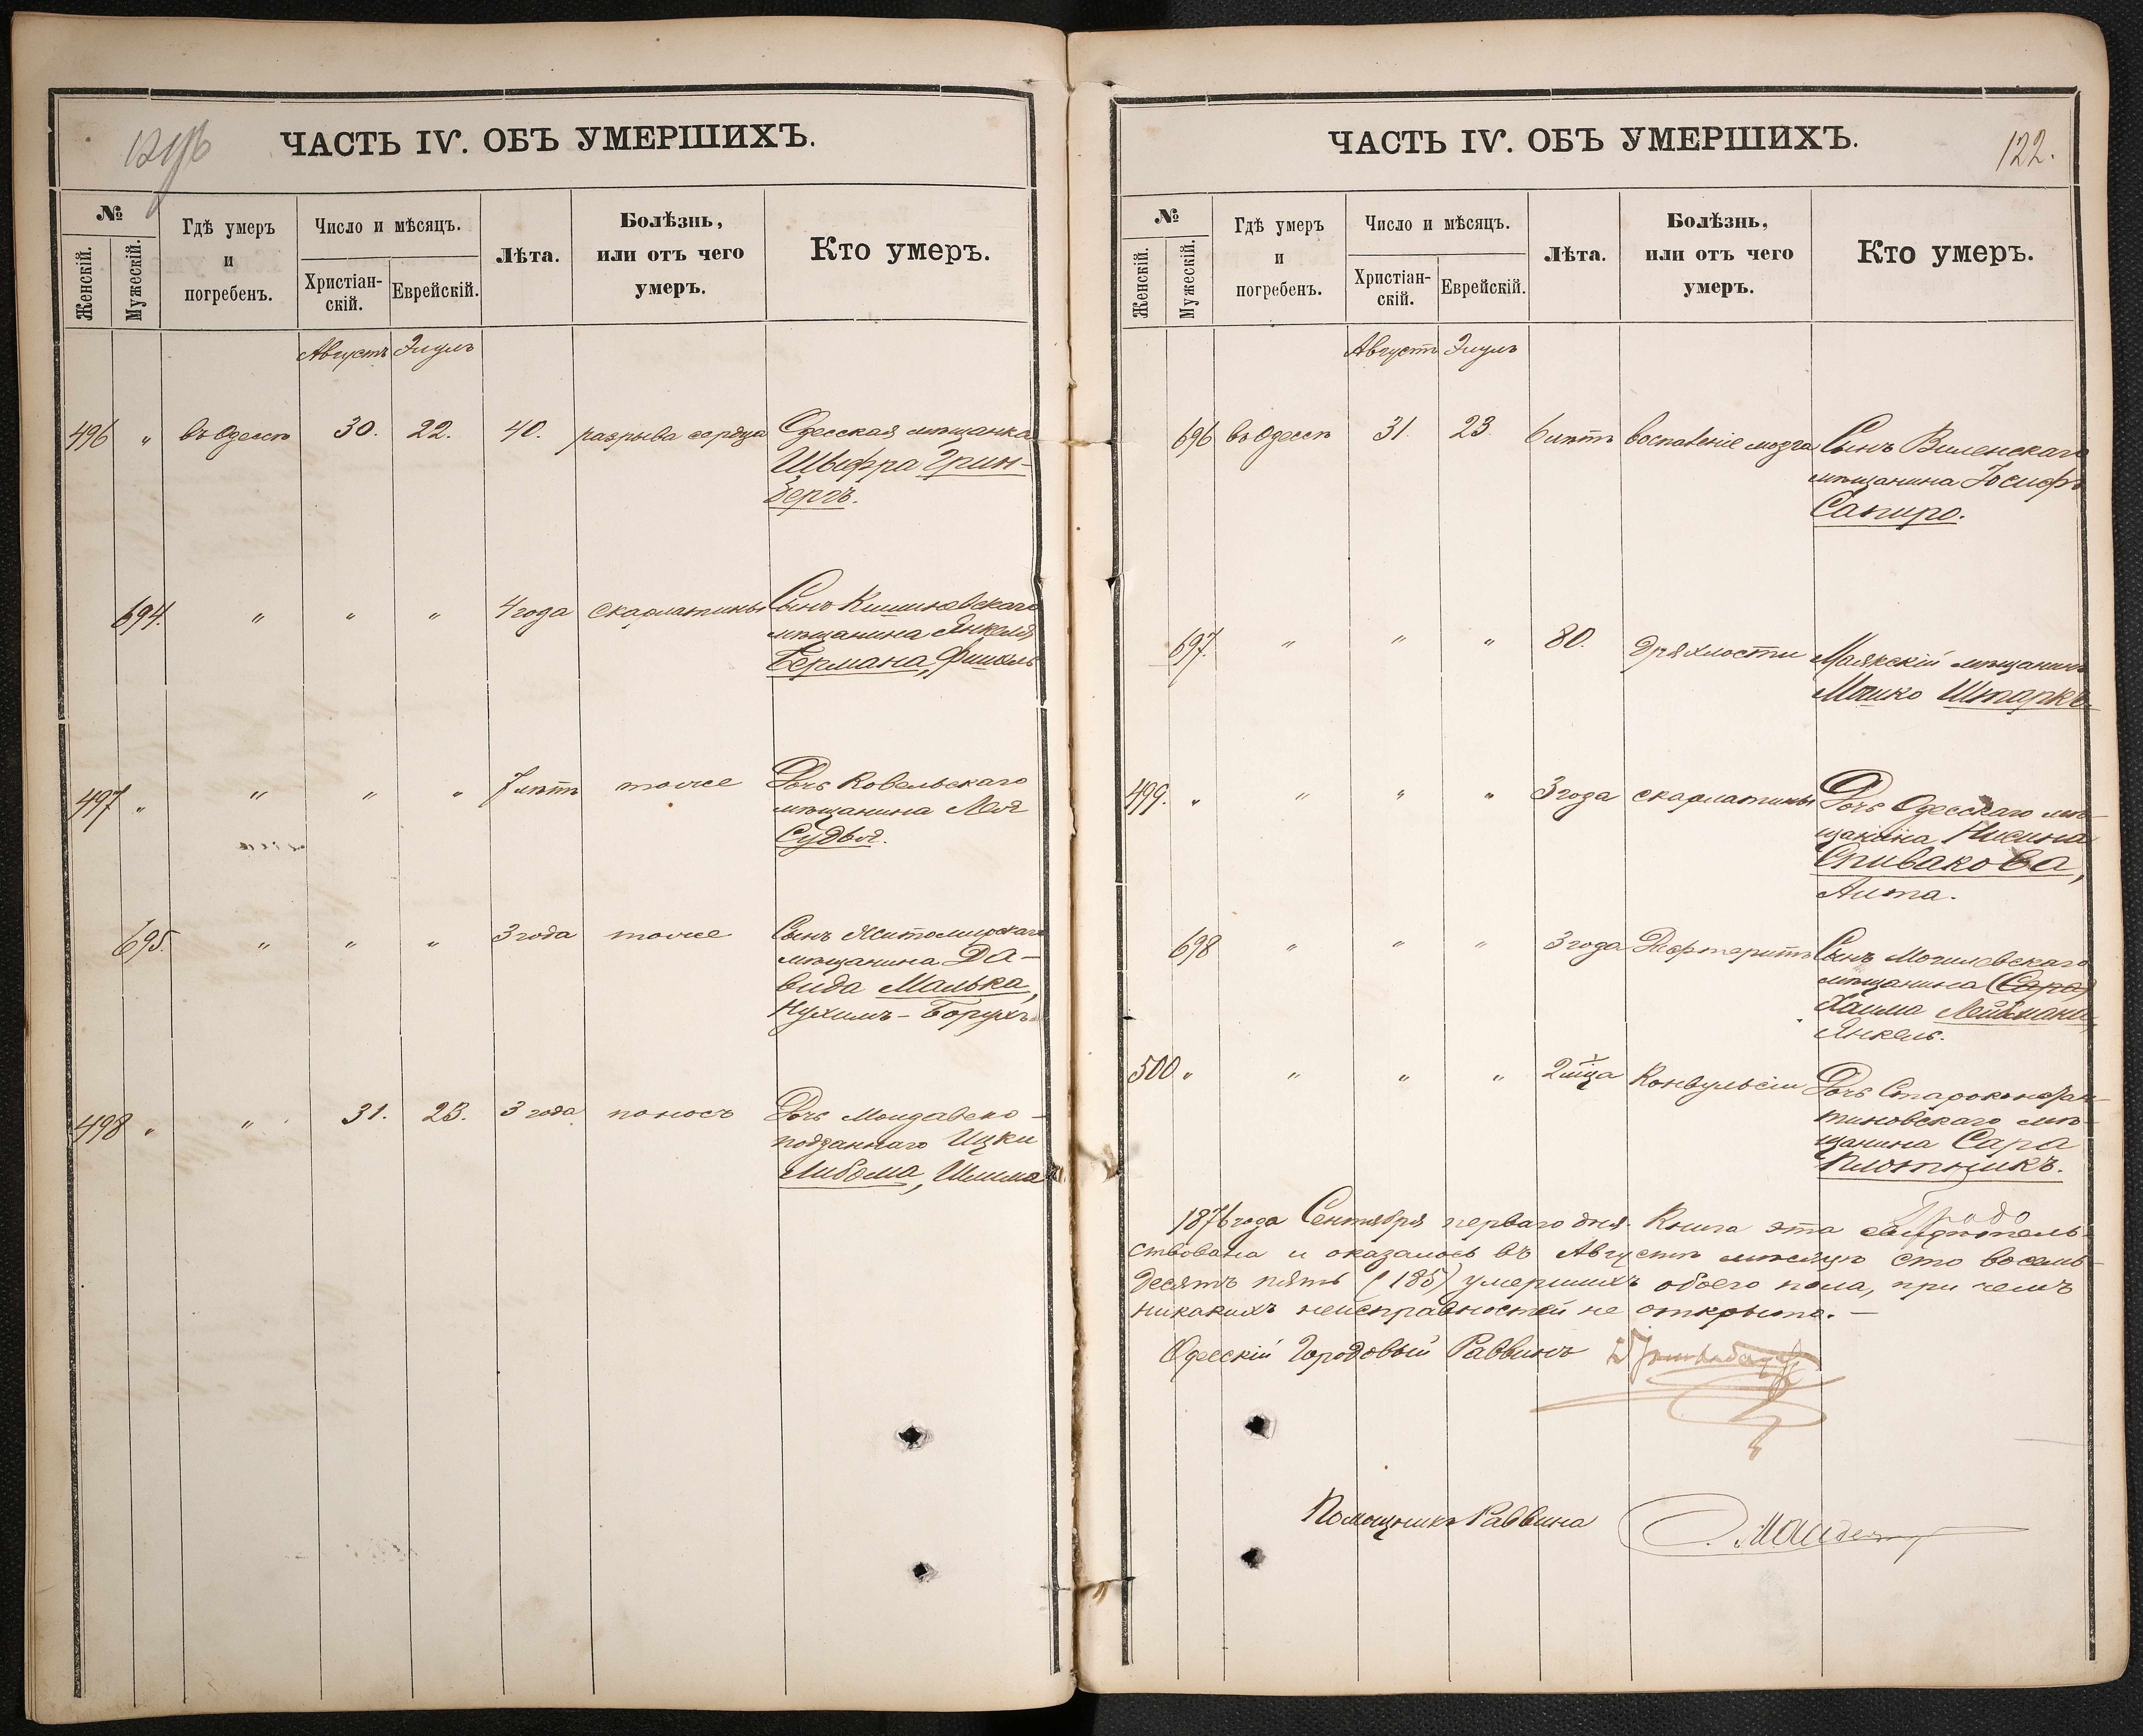 ЧАСТЬ IV. ОБЪ УМЕРШИХЪ.
№
Женскій.
Мужескій.
Гдѣ умеръ
и
погребенъ.
Число и мѣсяцъ.
Христіан-
скій.
Еврейскій.
Лѣта.
Болѣзнь,
или отъ чего
умеръ.
Кто умеръ.
Августъ Элулъ
496 " въ Одессѣ 30. 22. 40. разрыва сердца Одесская мѣщанка
Шифра Грин-
бергъ.
694. " " " 4 года скарлатины Сынъ Кишиневскаго
мѣщанина Янкеля
Германа, Фишель
497 " " " " 7 лѣтъ тоже Дочь Ковельскаго
мѣщанина Лея
Судья.
695. " " " 3 года тоже Сынъ Житомирскаго
мѣщанина Да-
вида Малька,
Нухимъ-Борухъ
498 " " 31. 23. 3 года поносъ Дочь Молдавско-
подданнаго Ицки
Либома, Шлима
ЧАСТЬ IV. ОБЪ УМЕРШИХЪ.
122.
№
Женскій.
Мужескій.
Гдѣ умеръ
и
погребенъ.
Число и мѣсяцъ.
Христіан-
скій.
Еврейскій.
Лѣта.
Болѣзнь,
или отъ чего
умеръ.
Кто умеръ.
Августъ Элулъ
696 въ Одессѣ 31. 23. 6 лѣтъ воспаленіе мозга Сынъ Виленскаго
мѣщанина Іосифъ
Сапиро.
697. " " " 80. дряхлости Маякскій мѣщанинъ
Мошко Штаркъ
499. " " " " 3 года скарлатины Дочь Одесскаго мѣ-
щанина Нисина
Спивакова,
Аита.
698 " " " 3 года Дифтеритъ Сынъ Могилевскаго
мѣщанина (Сара)
Хаима Лейбмана,
Янкель.
500 " " " " 2 м-ца Конвульсіи Дочь Староконстан-
тиновскаго мѣ-
щанина Сара
Плотникъ.
1876 года Сентября перваго дня. Книга эта свидѣтель-
ствована и оказалось въ Августѣ мѣсяцѣ сто восемь-
десятъ пять (185) умершихъ обоего пола, при чемъ
никакихъ неисправностей не открыто. —
Одесскій Городовый Раввинъ
Помощникъ Раввина